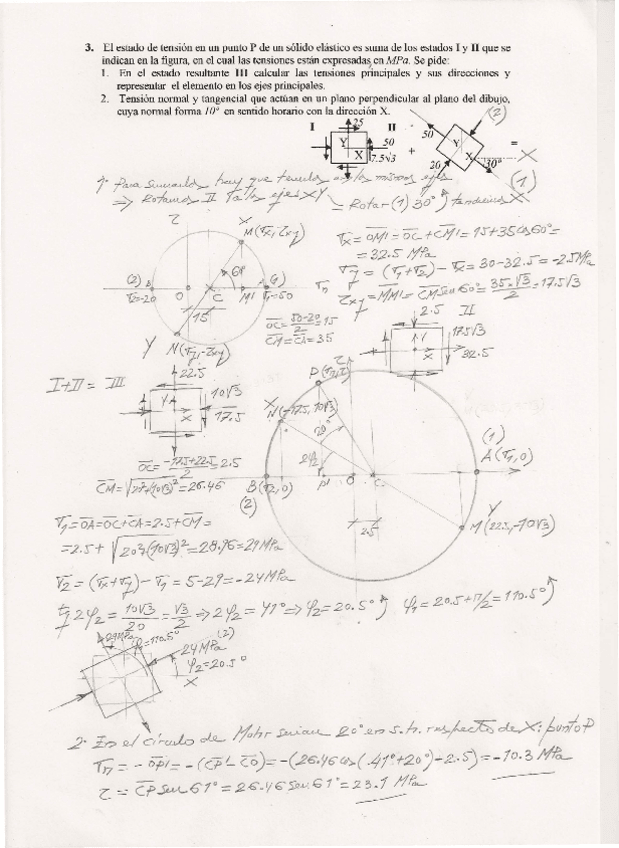 3. El estado de tensión en un punto P de un sólido elástico es suma de los estados I y II que se
indican en la figura, en el cual las tensiones están expresadas en MPa. Se pide:
1. En el estado resultante III calcular las tensiones principales y sus direcciones y
representar el elemento en los ejes principales.
2. Tensión normal y tangencial que actúan en un plano perpendicular al plano del dibujo,
cuya normal forma 10° en sentido horario con la dirección X.
I 25 Y X 50 7.5√3 II + 50 20 Y X 30° (2) = X (1)
1· Para sumarlos hay que tenerlos en los mismos ejes
⇒ Rotamos II a los ejes XY = Rotar (1) 30° tendremos X
τ M(σx,τxy)
(2) σ2=-20 O C M' (1) σ1=50 σn
60°
15
Y N(σy,-τxy)
OC = (50-20)/2 = 15
CM = CA = 35
σx = OM' = OC + CM' = 15+35cos60° =
= 32.5 MPa
σy = (σ1+σ2) - σx = 30-32.5 = -2.5 MPa
τxy = MM' = CM sen 60° = 35·√3/2 = 17.5√3
2.5 II
17.5√3
32.5
Y X
I+II = III
22.5
10√3
17.5
Y X
OC = (-17.5+22.5)/2 = 2.5
CM = √(20²+(10√3)²) = 26.46
τ
P(σn,τ)
X
N(-17.5, 10√3)
20°
2φ2
B(σ2,0) P' O C
(2)
(1)
A(σ1,0)
2.5
Y
M(22.5,-10√3)
σ1 = OA = OC+CA = 2.5+CM =
= 2.5 + √(20²+(10√3)²) = 28.96 = 29 MPa
σ2 = (σx+σy) - σ1 = 5-29 = -24 MPa
tg 2φ2 = 10√3/20 = √3/2 ⇒ 2φ2 = 41° ⇒ φ2 = 20.5° φ1 = 20.5+π/2 = 110.5°
29MPa
φ1=110.5°
24MPa (2)
φ2=20.5°
X
2· En el círculo de Mohr serían 20° en s.h. respecto de X: punto P
σn = -OP' = -(CP'-CO) = -(26.46cos(41°+20°)-2.5) = -10.3 MPa
τ = CP sen 61° = 26.46 sen 61° = 23.1 MPa